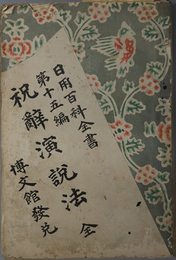 日用百科全書
第十五編
祝辭演說法 全
博文館發兌